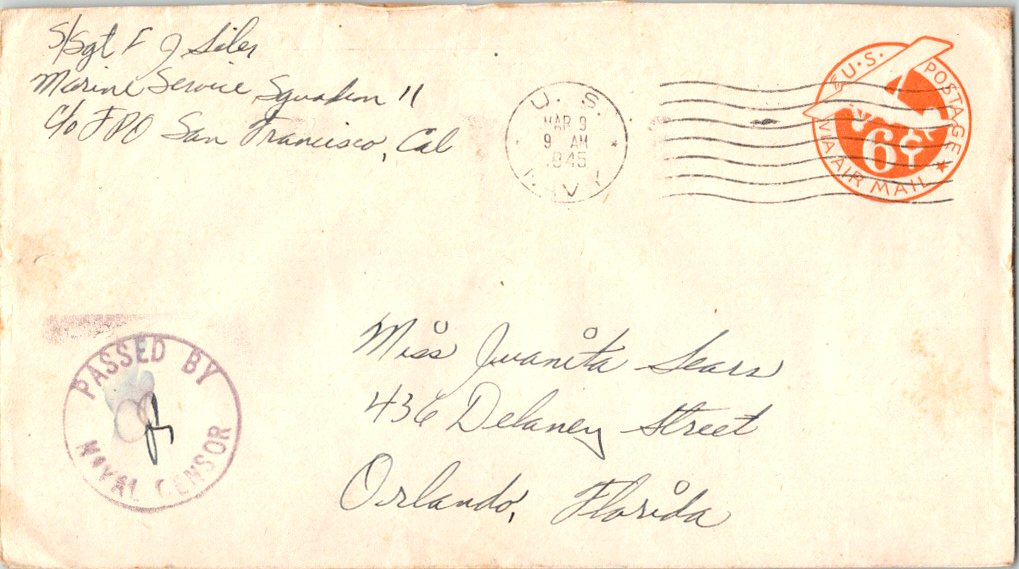 S/Sgt F J Siler
Marine Service Squadron 11
C/o FPO San Francisco, Cal
U. S.
MAR 9
9 AM
1945
NAVY
U.S. POSTAGE
6¢
VIA AIR MAIL
PASSED BY
NAVAL CENSOR
Miss Juanita Sears
436 Delaney Street
Orlando, Florida